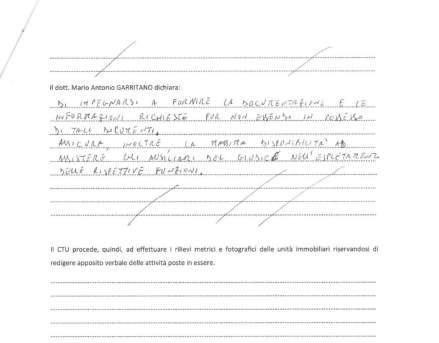 Il dott. Mario Antonio GARRITANO dichiara:
DI IMPEGNARSI A FORNIRE LA DOCUMENTAZIONE E LE
INFORMAZIONI RICHIESTE PUR NON ESSENDO IN POSSESSO
DI TALI DOCUMENTI.
ASSICURA, INOLTRE LA MASSIMA DISPONIBILITA' AD
ASSISTERE GLI AUSILIARI DEL GIUDICE NELL'ESPLETAMENTO
DELLE RISPETTIVE FUNZIONI.
Il CTU procede, quindi, ad effettuare i rilievi metrici e fotografici delle unità immobiliari riservandosi di
redigere apposito verbale delle attività poste in essere.